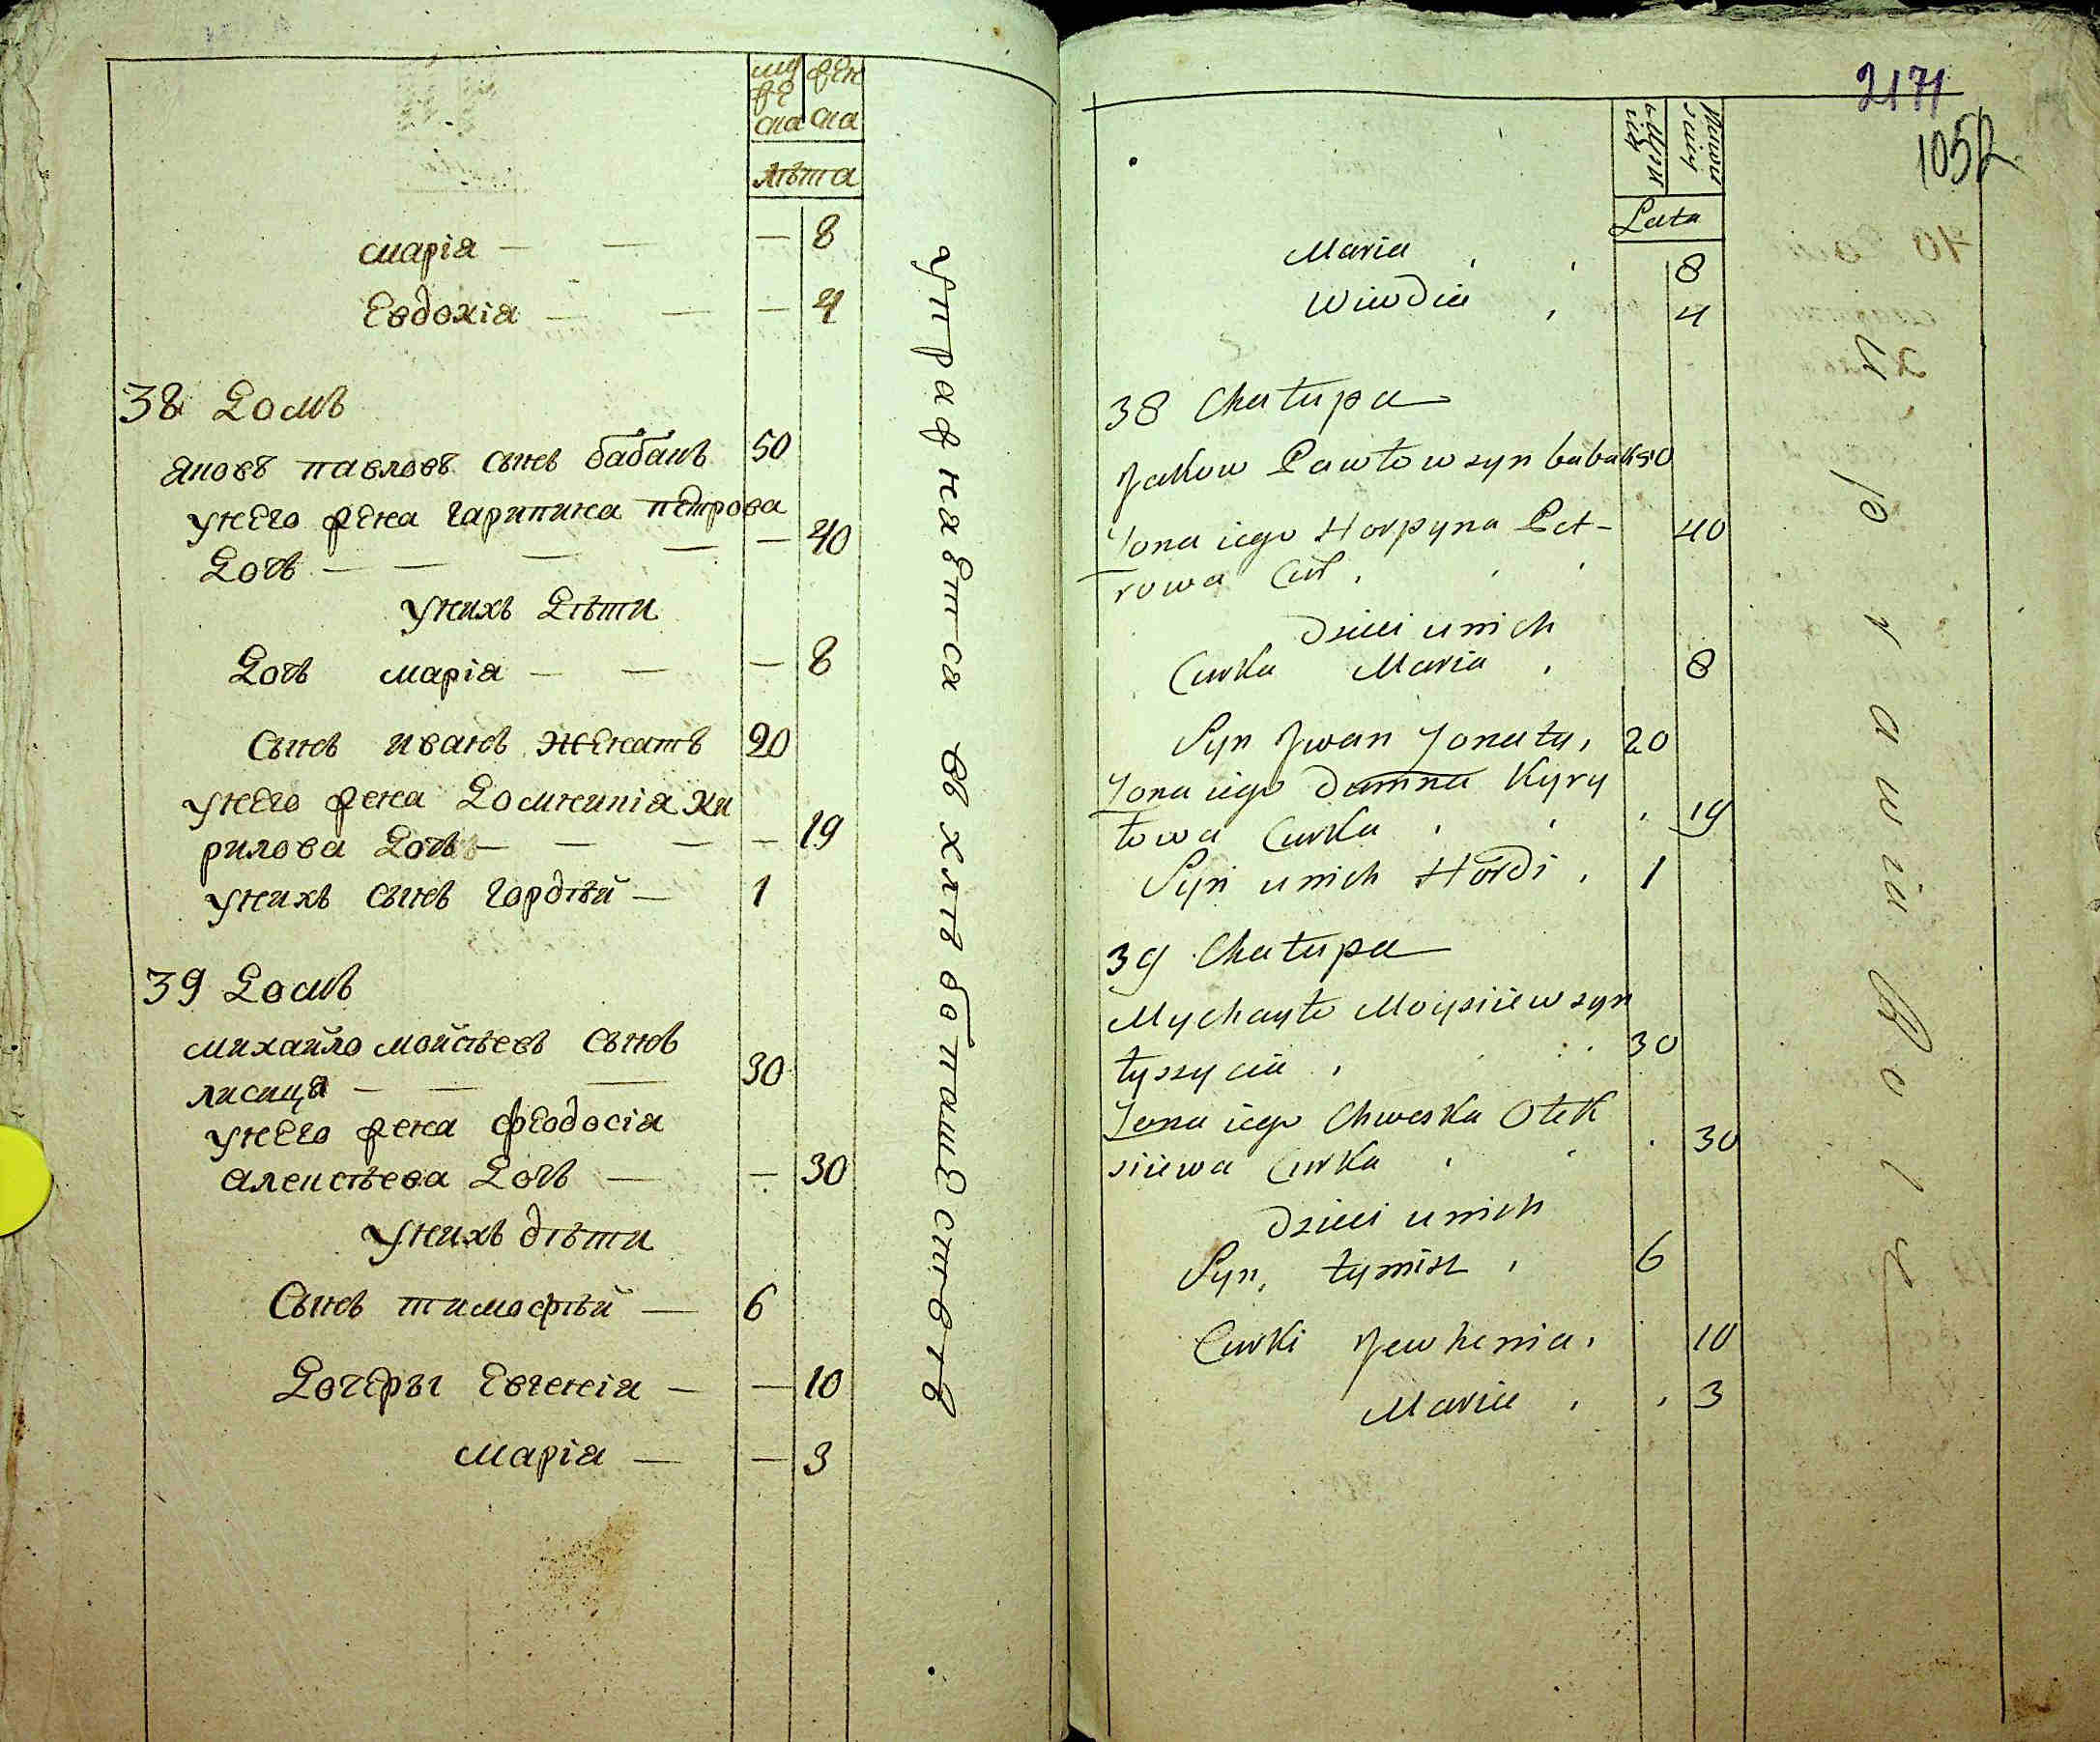 муже жен
ска ска
лѣта
марія — — — 8
Евдокія — — — 4
38 Домъ
яковъ павловъ сынъ бабакъ 50
унего жена гарипина петрова
Дочь — — — — 40
унихъ Дѣти
Дочь марія — — — 8
сынъ иванъ женатъ 20
унего жена Домникія ки
рилова Дочь — — — — 19
унихъ сынъ гордѣй — 1
39 Домъ
михайло мойсѣевъ сынъ
лисиця — — — 30
унего жена феодосія
алексѣева Дочь — — 30
унихъ дѣти
Сынъ тимофѣй — 6
Дочеры Евгенія — — 10
марія — — 3
упражняется въ хлѣбопашествѣ
2171
1052
Lata
Maria 8
Wiwdia 4
38 Chałupa
Jakow Pawłow syn babak 50
Żona iego Horpyna Pet- 40
rowa Cur.
Dzieci u nich
Curka Maria 8
Syn Jwan Żonaty, 20
Żona iego Damna Kyry
łowa Curka 19
Syn u nich Hordi 1
39 Chałupa
Mychayło Moysiiew syn
łyszycia 30
Żona iego Chweska Ołek
siiewa Curka 30
Dzieci u nich
Syn, tymisz 6
Curki Jewhenia 10
Maria 3
Uprawia Role